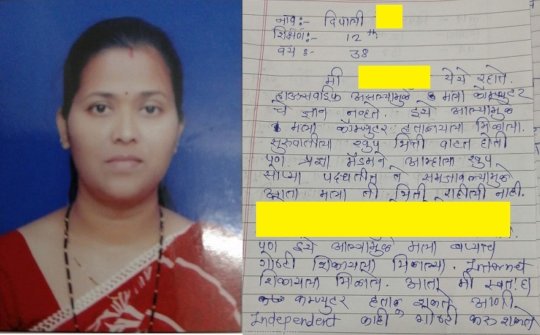 नाव:- दिपाली
शिक्षण:- 12th
वय :- 38
मी येथे राहाते.
हाऊसवाईफ असल्यामुळे मला कॉम्प्युटर
चे ज्ञान नव्हते. इथे आल्यामुळे
मला कॉम्प्युटर हाताळायला मिळाला.
सुरुवातीला खुप भिती वाटत होती
पण प्रज्ञा मॅडमने आम्हाला खुप
सोप्या पध्दतीने समजावल्यामुळे
आता मला ती भिती राहीली नाही.
पण इथे आल्यामुळे मला बऱ्याच
गोष्टी शिकायला मिळाल्या. Internet
शिकायला मिळाल. आता मी स्वतःहा
कम्प्युटर हाताळू शकते आणि
Independent काही गोष्टी करु शकते